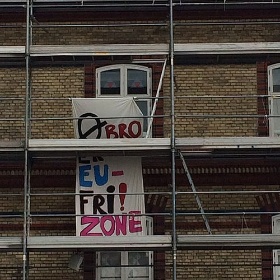 ØBRO
ER
EU-
FRI!
ZONE